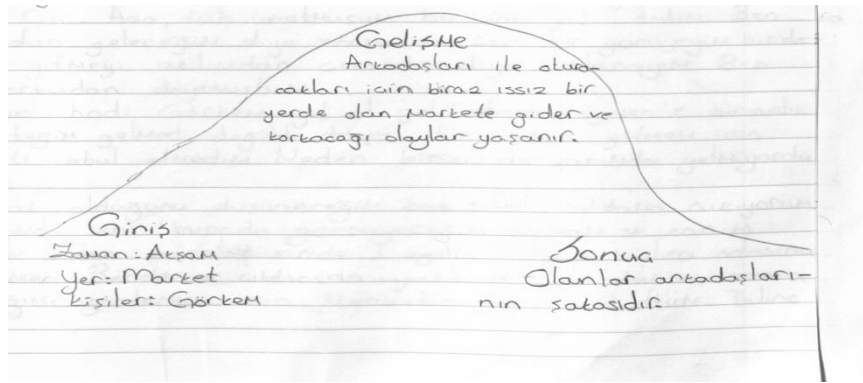 Gelişme
Arkadaşları ile otura-
cakları için biraz ıssız bir
yerde olan markete gider ve
korkacağı olaylar yaşanır.
Giriş
Zaman: Akşam
Yer: Market
Kişiler: Görkem
Sonuç
Olanlar arkadaşları-
nın şakasıdır.